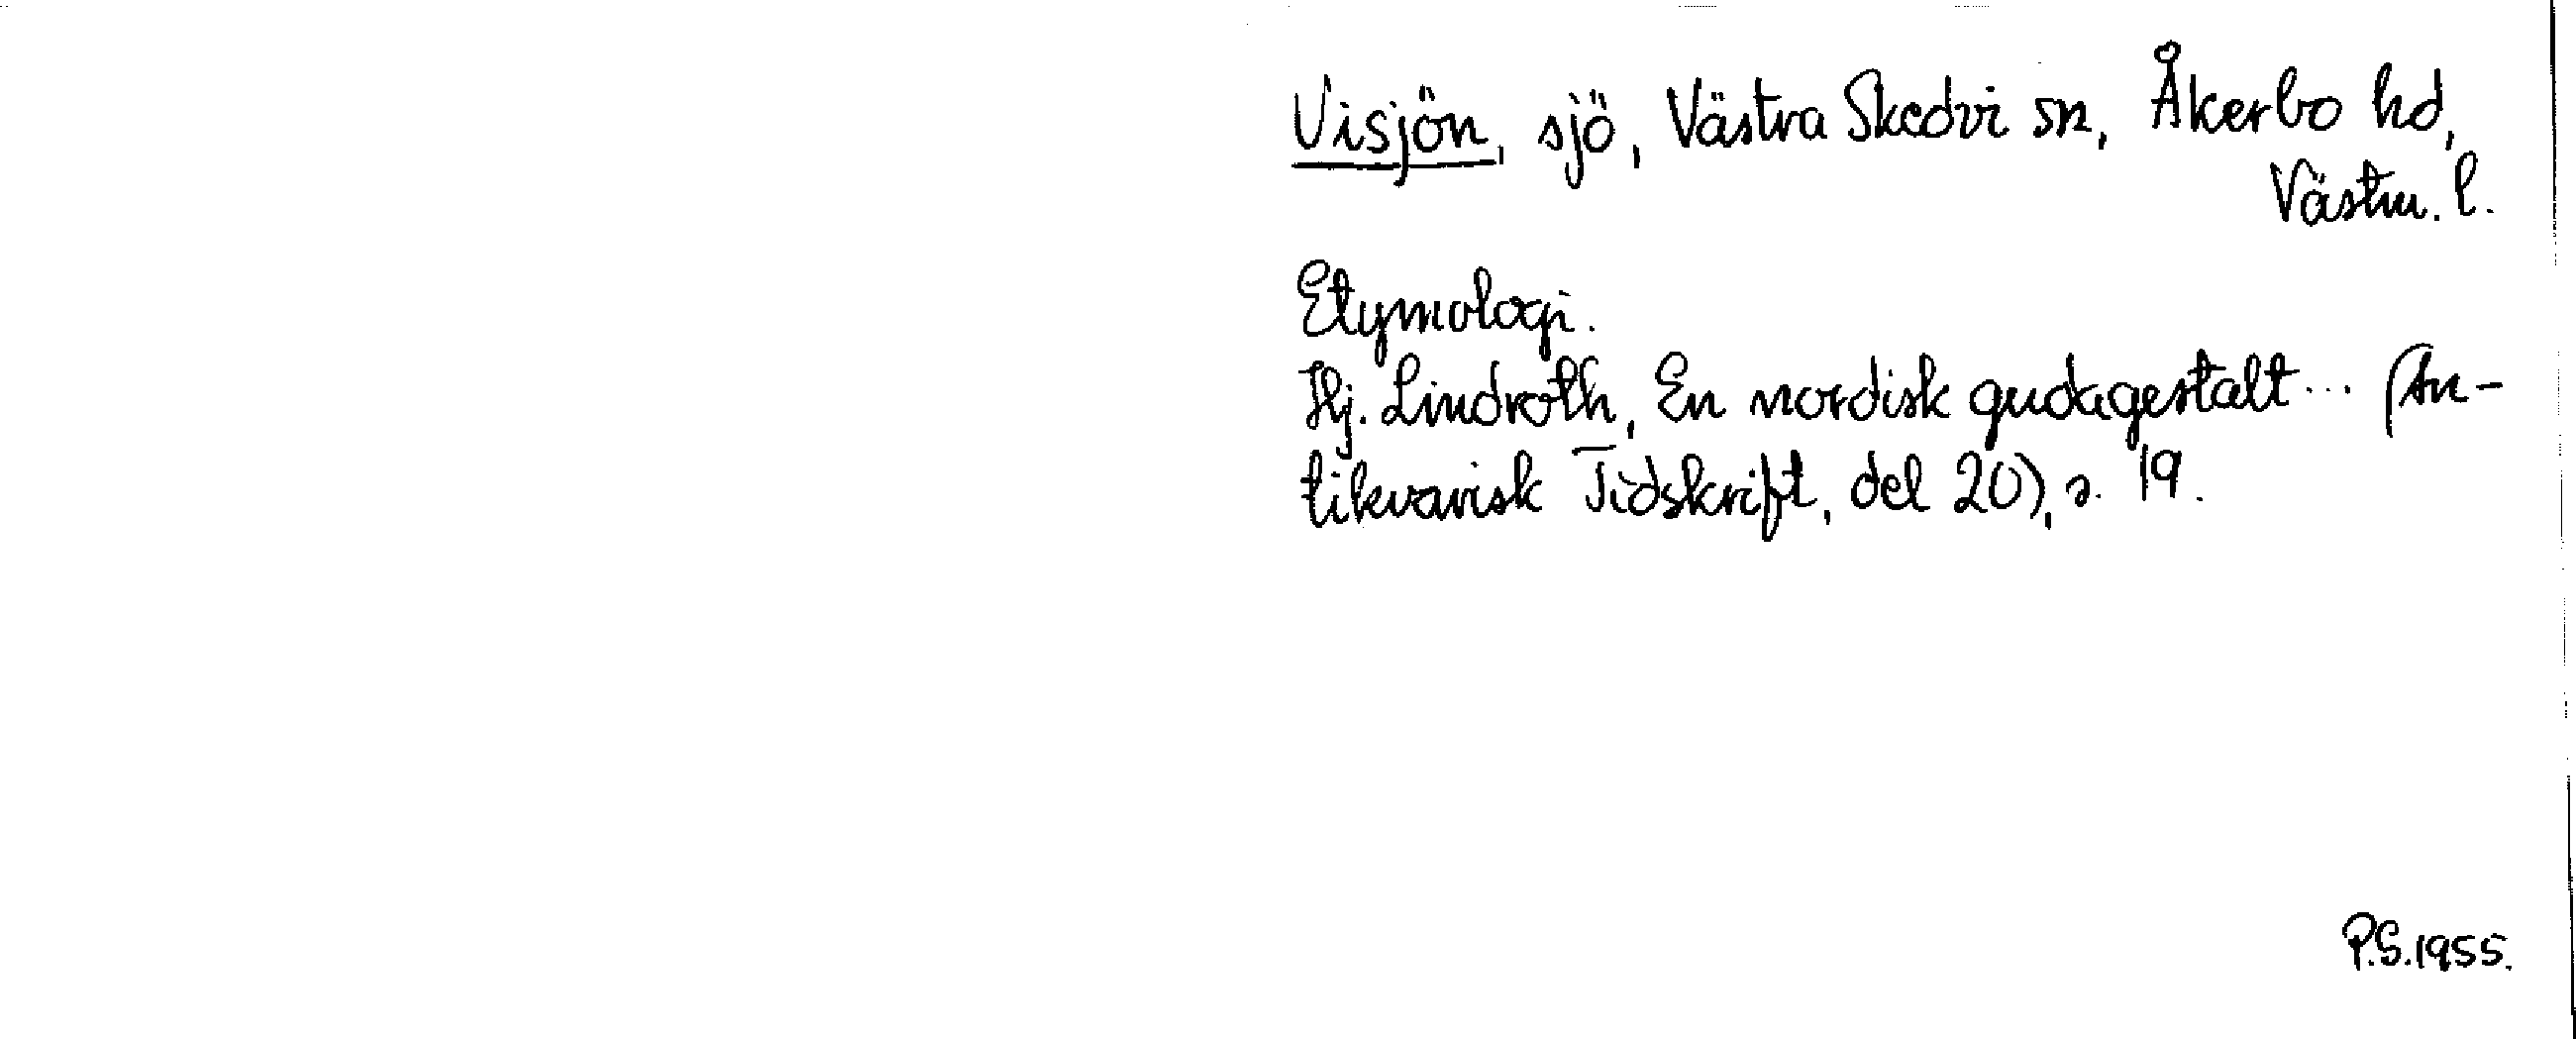 Visjön, sjö, Västra Skedvi sn, Åkerbo hd,
Västm. l.
Etymologi.
Hj. Lindroth, En nordisk gudagestalt... (An-
tikvarisk Tidskrift, del 20), s. 19.
P.S. 1955.